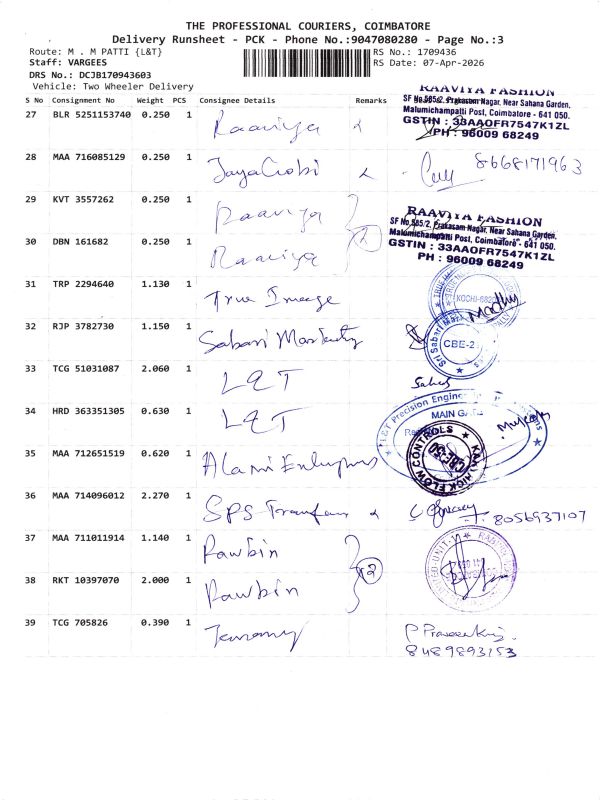 THE PROFESSIONAL COURIERS, COIMBATORE
Delivery Runsheet - PCK - Phone No.:9047080280 - Page No.:3
Route: M . M PATTI {L&T}
RS No.: 1709436
Staff: VARGEES
RS Date: 07-Apr-2026
DRS No.: DCJB170943603
Vehicle: Two Wheeler Delivery
S No Consignment No Weight PCS Consignee Details Remarks
RAAVIYA FASHION
SF No.505/2, Prakasam Nagar, Near Sahana Garden,
Malumichampatti Post, Coimbatore - 641 050.
GSTIN : 33AAOFR7547K1ZL
PH : 96009 68249
27 BLR 5251153740 0.250 1 Raaviya
28 MAA 716085129 0.250 1 8668171963
29 KVT 3557262 0.250 1 Raaviya
RAAVIYA FASHION
SF No.505/2, Prakasam Nagar, Near Sahana Garden,
Malumichampatti Post, Coimbatore - 641 050.
GSTIN : 33AAOFR7547K1ZL
PH : 96009 68249
30 DBN 161682 0.250 1 Raaviya 2
31 TRP 2294640 1.130 1 True Image
Madhu
32 RJP 3782730 1.150 1 Sabari
CBE-2
33 TCG 51031087 2.060 1 L&T
34 HRD 363351305 0.630 1 L&T
MAIN GATE
35 MAA 712651519 0.620 1
FLOW CONTROLS
CBE-50
36 MAA 714096012 2.270 1 SPS
8056937107
37 MAA 711011914 1.140 1 Rawbin
2
38 RKT 10397070 2.000 1 Rawbin
39 TCG 705826 0.390 1
8489893153